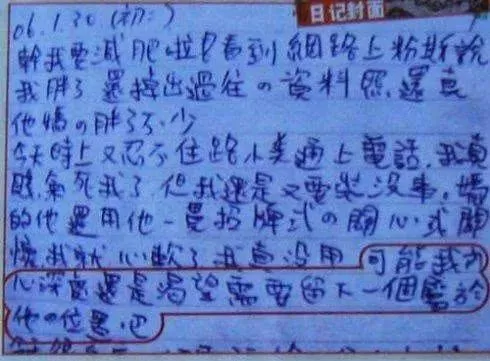 日记封面
06.1.30(初二)
幹我要減肥啦!看到網路上粉斯說
我胖了還掉出過往の資料照還真
他媽の胖了不少
今天時上又忍不住路人美通上電話.我真
賤.氣死我了但我還是又要裝沒事.媽
的他還用他一貫招牌式の關心式關
懷我就心軟了我真沒用可能我內
心深處還是渴望需要留下一個屬於
他の位置吧